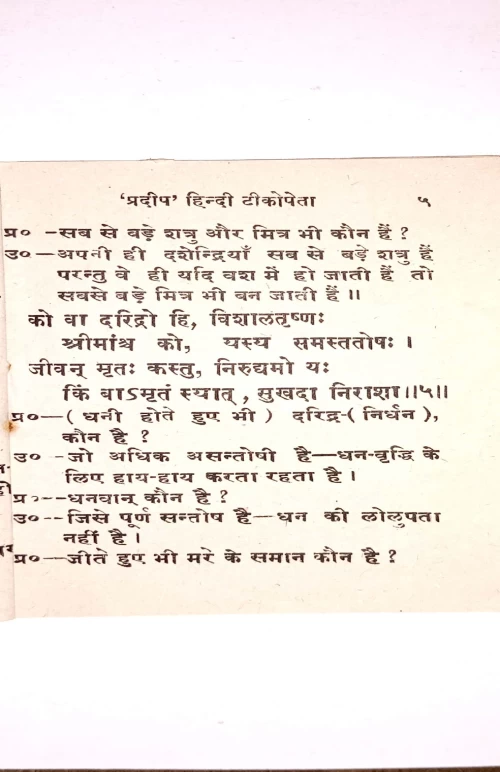 'प्रदीप' हिन्दी टीकोपेता ५
प्र० -सब से बड़े शत्रु और मित्र भी कौन हैं ?
उ०—अपनी ही दशेन्द्रियाँ सब से बड़े शत्रु हैं
परन्तु वे ही यदि वश में हो जाती हैं तो
सबसे बड़े मित्र भी बन जाती हैं ॥
को वा दरिद्रो हि, विशालतृष्णः
श्रीमांश्च को, यस्य समस्ततोषः ।
जीवन् मृतः कस्तु, निरुद्यमो यः
किं वाऽमृतं स्यात्, सुखदा निराशा॥५॥
प्र०—( धनी होते हुए भी ) दरिद्र-( निर्धन ),
कौन है ?
उ० -जो अधिक असन्तोषी है—धन-वृद्धि के
लिए हाय-हाय करता रहता है ।
प्र०--धनवान् कौन है ?
उ०--जिसे पूर्ण सन्तोष है—धन की लोलुपता
नहीं है ।
प्र०—जीते हुए भी मरे के समान कौन है ?